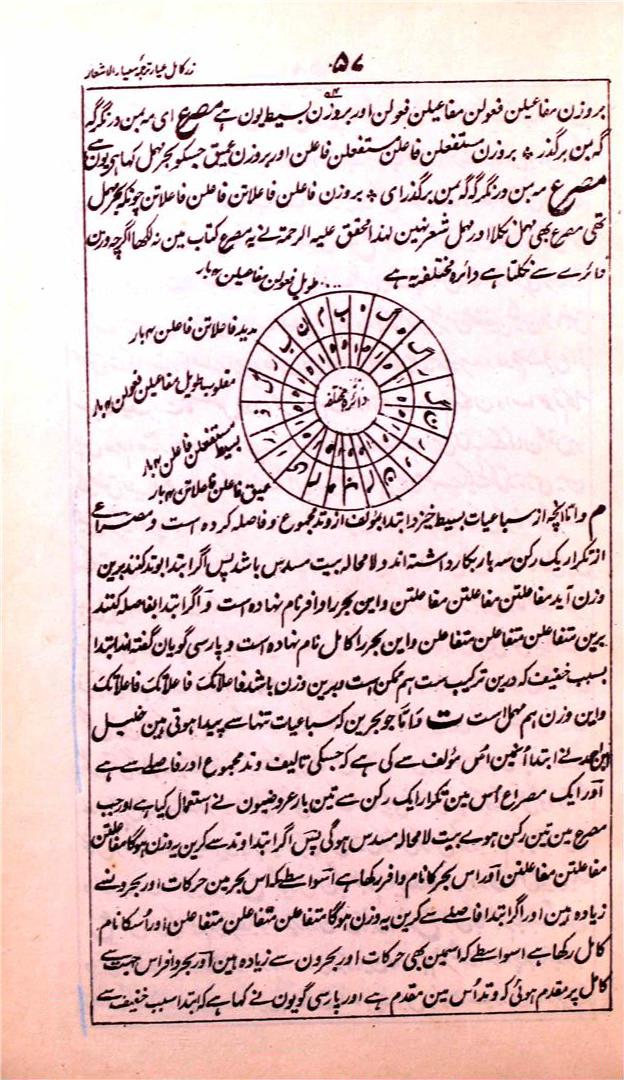 ۵۷
زر کامل عیار ترجمہ معیار الاشعار
بروزن مفاعیلن فعولن مفاعیلن فعولن اور بروزن بسیط یون ہے مصرع ای مہ من در نگر گہ
گہ بمن برگذر ٭ بروزن مستفعلن فاعلن مستفعلن فاعلن اور بروزن عمیق جسکو بحر مہمل کہا ہی یون ہے
مصرع مہ من در نگر گہ گہ بمن برگذر ای ٭ بروزن فاعلن فاعلاتن فاعلن فاعلاتن چونکہ بحر مہمل
تھی مصرع بھی مہمل نکلا اور مہمل شعر نہین لہذا محقق علیہ الرحمۃ نے یہ مصرع کتاب مین نہ لکھا اگرچہ وزن
دائرے سے نکلتا ہے دائرہ مختلفہ یہ ہے
طویل فعولن مفاعیلن ۴ بار
مدید فاعلاتن فاعلن ۴ بار
مقلوب طویل مفاعیلن فعولن ۴ بار
بسیط مستفعلن فاعلن ۴ بار
عمیق فاعلن فاعلاتن ۴ بار
دائرہ مختلفہ
م و اما انچہ از سباعیات بسیط خیزد ابتدا بمؤلف از وتد مجموع و فاصلہ کردہ است و مصراعے
از تکرار یک رکن سہ بار بکار داشتہ اند و لامحالہ بیت مسدس باشد پس اگر ابتدا بوتد کنند برین
وزن آید مفاعلتن مفاعلتن مفاعلتن و این بحر را وافر نام نہادہ است و اگر ابتدا بفاصلہ کنند
برین متفاعلن متفاعلن متفاعلن و این بحر را کامل نام نہادہ است و پارسی گویان گفتہ اند ابتدا
بسبب خفیف کہ درین ترکیب ست ہم ممکن است و برین وزن باشد فاعلاتک فاعلاتک فاعلاتک
و این وزن ہم مہمل است ت و اما جو بحرین کہ سباعیات تنہا سے پیدا ہوتی ہین خلیل
ابن احمد نے ابتدا انہین اس مؤلف سے کی ہے کہ جسکی تالیف وتد مجموع اور فاصلے سے ہے
اور ایک مصراع اس مین تکرار ایک رکن سے تین بار عروضیون نے استعمال کیا ہے اور جب
مصرع مین تین رکن ہوے بیت لامحالہ مسدس ہوگی پس اگر ابتدا وتد سے کرین یہ وزن ہوگا مفاعلتن
مفاعلتن مفاعلتن اور اس بحر کا نام وافر رکھا ہے اسواسطے کہ اس بحر مین حرکات اور بحرونسے
زیادہ ہین اور اگر ابتدا فاصلے سے کرین یہ وزن ہوگا متفاعلن متفاعلن متفاعلن اور اسکا نام
کامل رکھا ہے اسواسطے کہ اسمین بھی حرکات اور بحرون سے زیادہ ہین اور بحر وافر اس جہت سے
کامل پر مقدم ہوئی کہ وتد اس مین مقدم ہے اور پارسی گویون نے کہا ہے کہ ابتدا سبب خفیف سے